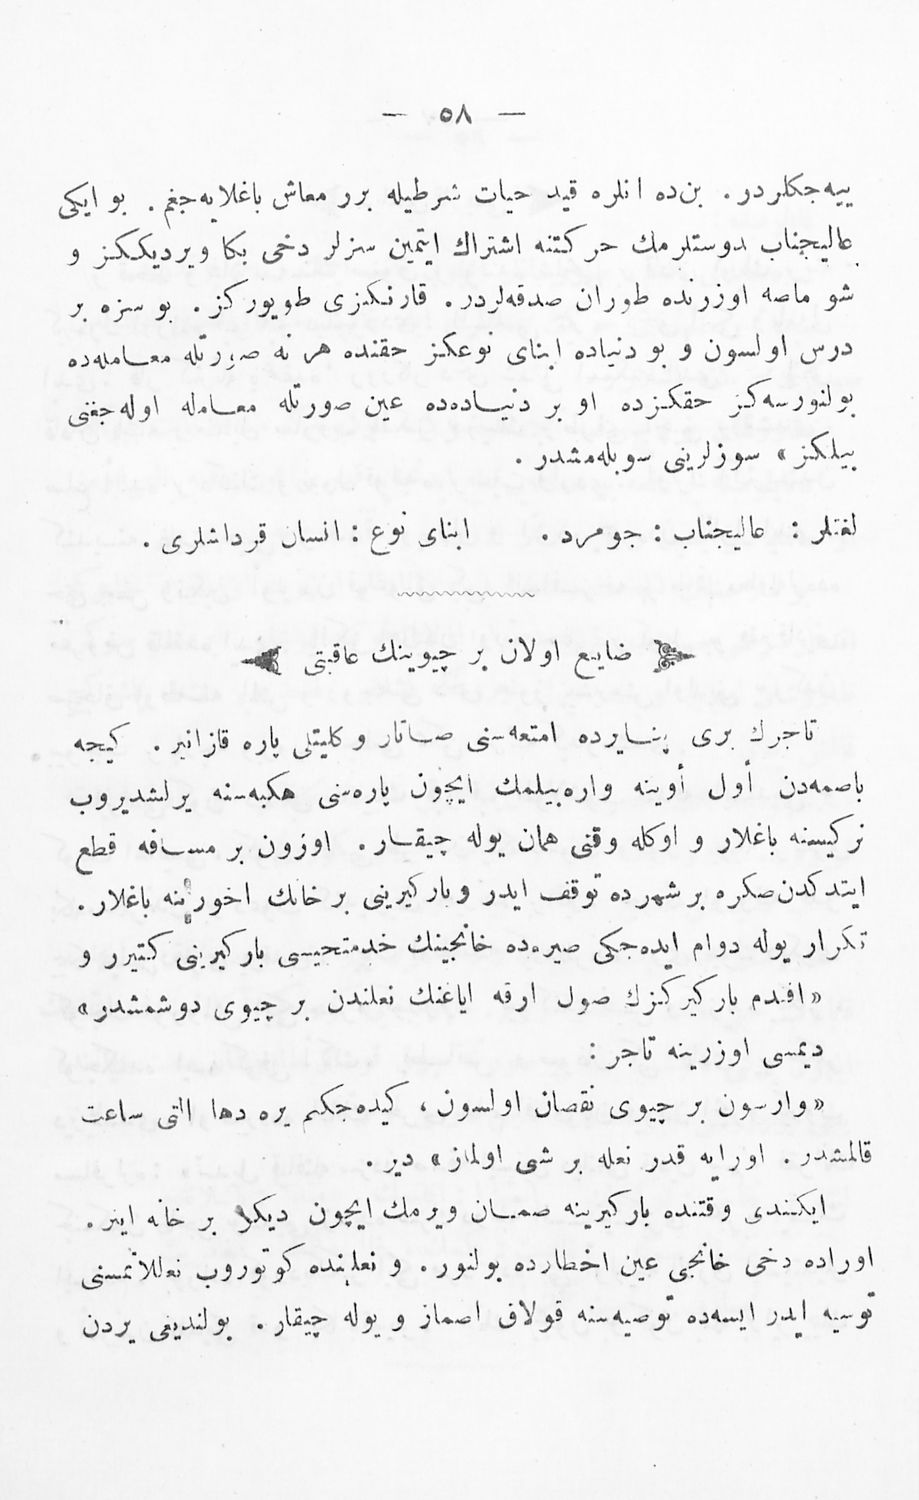 — ٥٨ —
ییه‌جكلردر. بن‌ده انلره قید حیات شرطیله برر معاش باغلایه‌جغم. بو ایكی
عالیجناب دوستلرمك حركتنه اشتراك ایتمین سزلر دخی بكا ویردیككز و
شو ماصه اوزرنده طوران صدقه‌لردر. قارنكزی طویوركز. بو سزه بر
درس اولسون و بو دنیاده ابنای نوعكز حقنده هر نه صورتله معامله‌ده
بولنورسه‌كز حقكزده او بر دنیاده‌ده عین صورتله معامله اوله‌جغنی
بیلكز» سوزلرینی سویله‌مشدر.
لغتلر: عالیجناب: جومرد. ابنای نوع: انسان قرداشلری.
ضایع اولان بر چیوینك عاقبتی
تاجرك بری پنایرده امتعه‌سنی صاتار و كلیتلی پاره قازانیر. كیجه
باصمه‌دن أول أوینه واره‌بیلمك ایچون پاره‌سنی هكبه‌سنه یرلشدیروب
تركیسنه باغلار و اوكله وقتی همان یوله چیقار. اوزون بر مسافه قطع
ایتدكدن‌صكره بر شهرده توقف ایدر و باركیرینی بر خانك اخورینه باغلار.
تكرار یوله دوام ایده‌جكی صیره‌ده خانجینك خدمتجیسی باركیرینی كتیرر و
«افندم باركیركزك صول ارقه ایاغنك نعلندن بر چیوی دوشمشدر»
دیمسی اوزرینه تاجر:
«وارسون بر چیوی نقصان اولسون، كیده‌جكم یره دها التی ساعت
قالمشدر. اورایه قدر نعله بر شی اولماز» دیر.
ایكندی وقتنده باركیرینه صمان ویرمك ایچون دیكر بر خانه اینر.
اوراده دخی خانجی عین اخطارده بولنور. و نعلبنده كوتوروب نعللاتمسنی
توسیه ایدر ایسه‌ده توصیه‌سنه قولاق اصماز و یوله چیقار. بولندیغی یردن